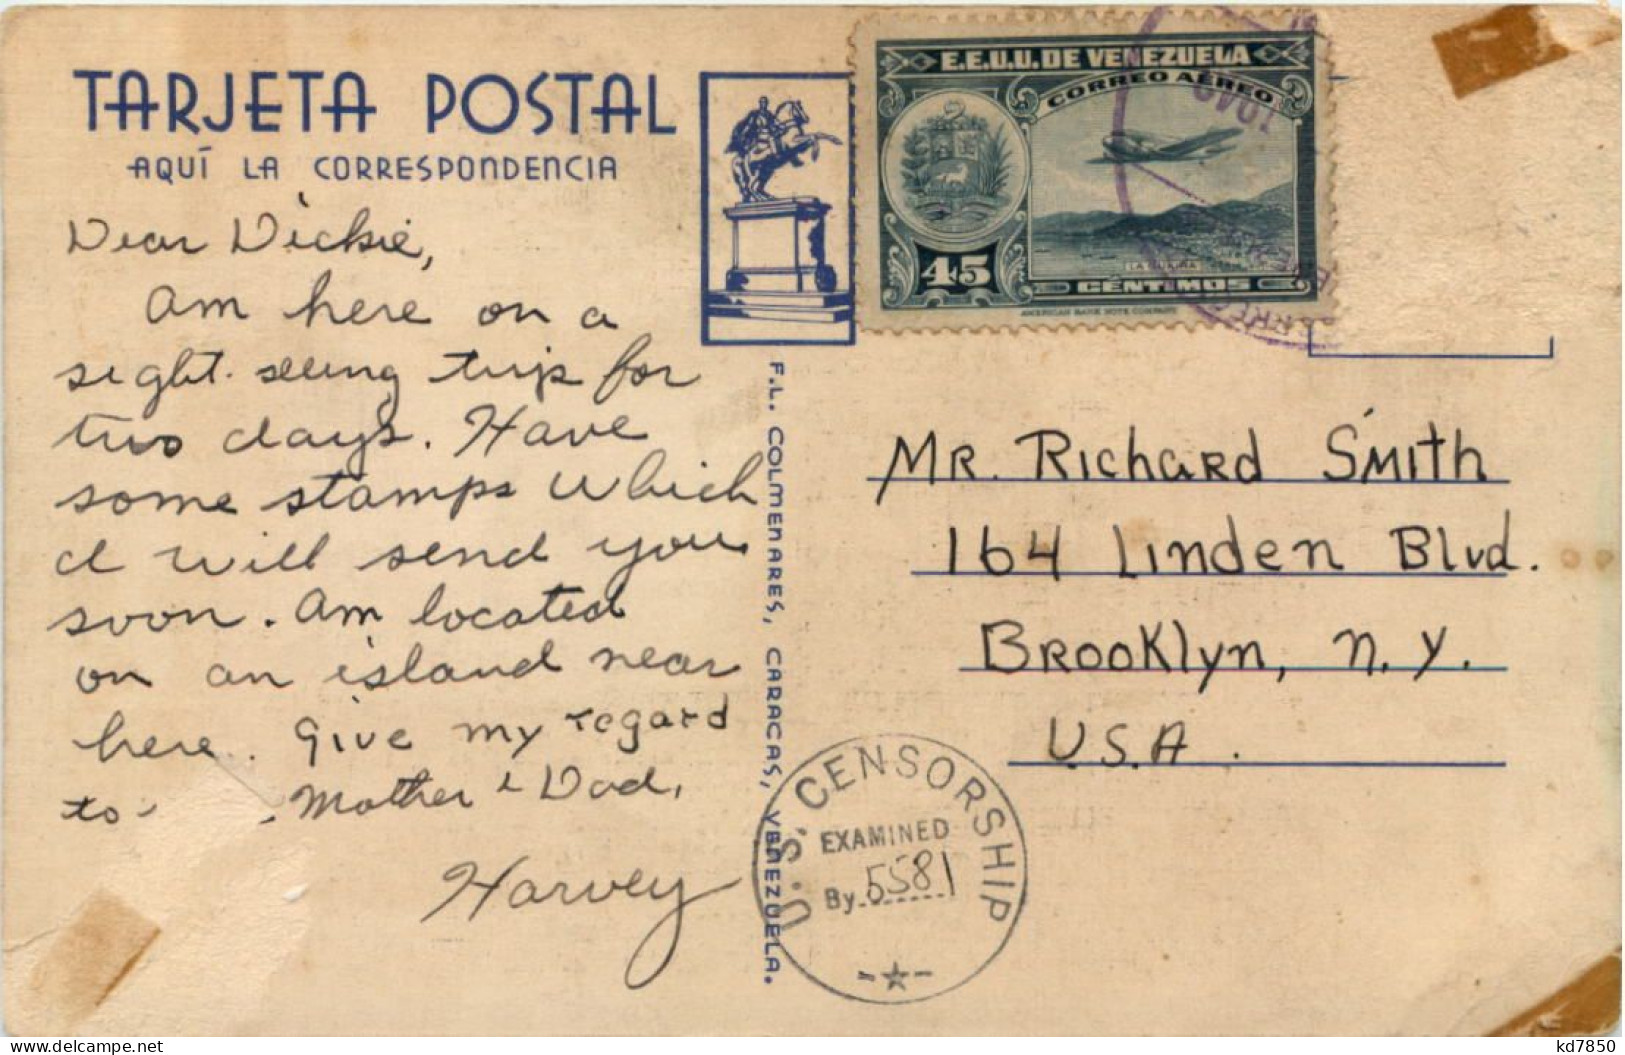 TARJETA POSTAL
AQUÍ LA CORRESPONDENCIA
Dear Dickie,
Am here on a
sight-seeing trip for
two days. Have
some stamps which
I will send you
soon. Am located
on an island near
here. Give my regard
to Mother & Dad.
Harvey
F.L. COLMENARES, CARACAS, VENEZUELA.
E.E.U.U. DE VENEZUELA
CORREO AÉREO
LA GUAIRA
45
CÉNTIMOS
AMERICAN BANK NOTE COMPANY
Mr. Richard Smith
164 Linden Blvd.
Brooklyn, N.Y.
U.S.A.
U.S. CENSORSHIP
EXAMINED
By 5581
kd7850